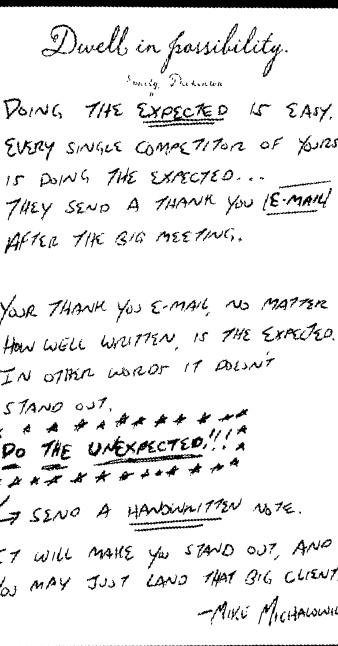 Dwell in possibility.
Emily Dickinson
DOING THE EXPECTED IS EASY.
EVERY SINGLE COMPETITOR OF YOURS
IS DOING THE EXPECTED...
THEY SEND A THANK YOU E-MAIL
AFTER THE BIG MEETING.
YOUR THANK YOU E-MAIL, NO MATTER
HOW WELL WRITTEN, IS THE EXPECTED.
IN OTHER WORDS IT DOESN'T
STAND OUT.
DO THE UNEXPECTED!!!
→ SEND A HANDWRITTEN NOTE.
IT WILL MAKE YOU STAND OUT, AND
YOU MAY JUST LAND THAT BIG CLIENT.
—MIKE